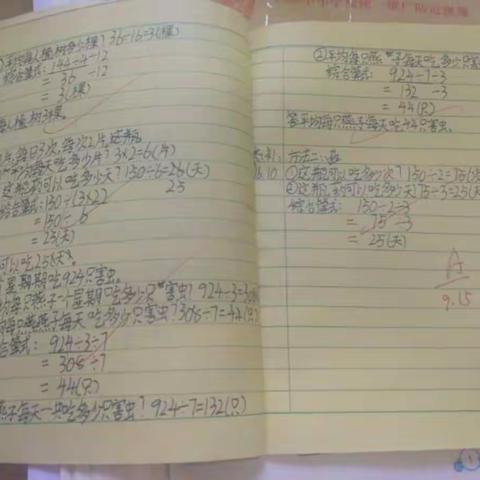 平均每人植树多少棵? 36÷12=3(棵)
综合算式: 144÷4÷12
= 36 ÷12
= 3(棵)
每人植树3棵。
片,每日3次,每次2片,这瓶
每天吃多少片? 3×2=6(片)
可以吃多少天? 150÷6=25(天)
25
综合算式: 150÷(3×2)
= 150÷6
= 25(天)
可以吃25(天)。
星期吃924只害虫。
每只燕子一个星期吃多少只害虫? 924÷3=308(只)
每只燕子每天吃多少只害虫? 308÷7=44(只)
综合算式: 924÷3÷7
= 308÷7
= 44(只)
燕子每天一共吃多少只害虫? 924÷7=132(只)
②平均每只燕子每天吃多少只害虫
综合算式: 924÷7÷3
= 132 ÷3
= 44(只)
答:平均每只燕子每天吃44只害虫。
方法二:
①这瓶可以吃多少次? 150÷2=75(次)
②这瓶可以吃多少天? 75÷3=25(天)
综合算式: 150÷2÷3
= 75÷3
= 25(天)
A
9.15